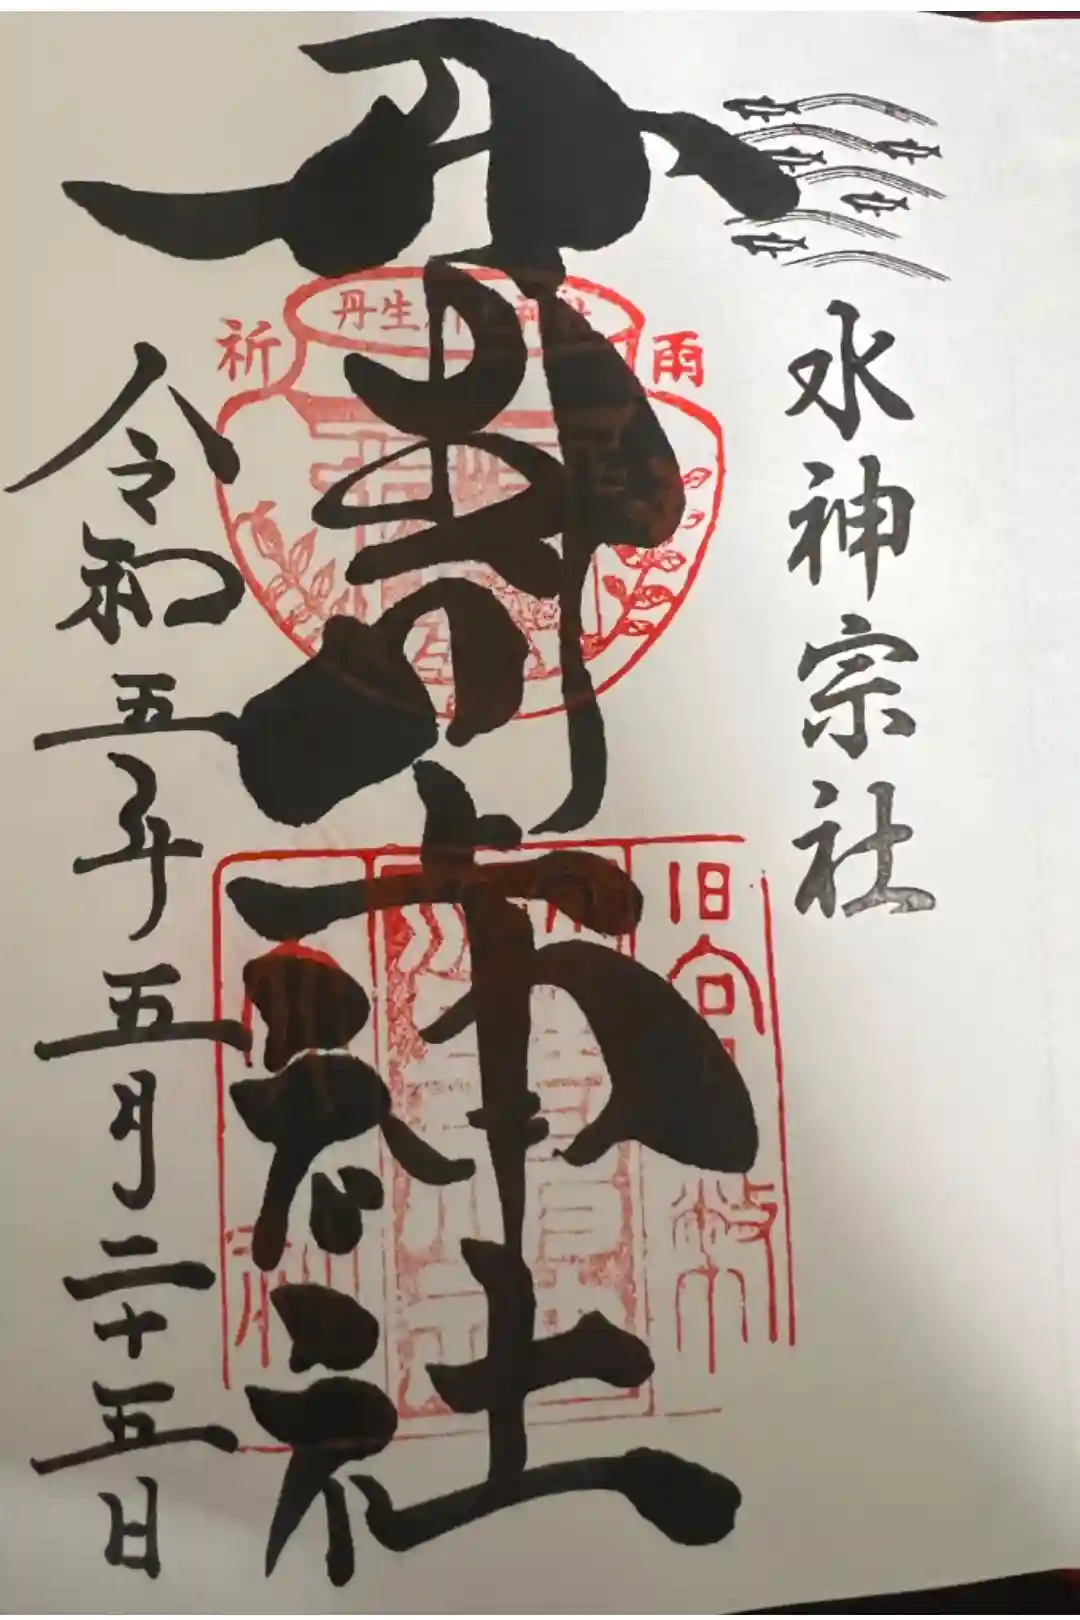 水神宗社
丹生川上神社
丹生川上神社
祈 雨
旧官幣
令和五年五月二十五日